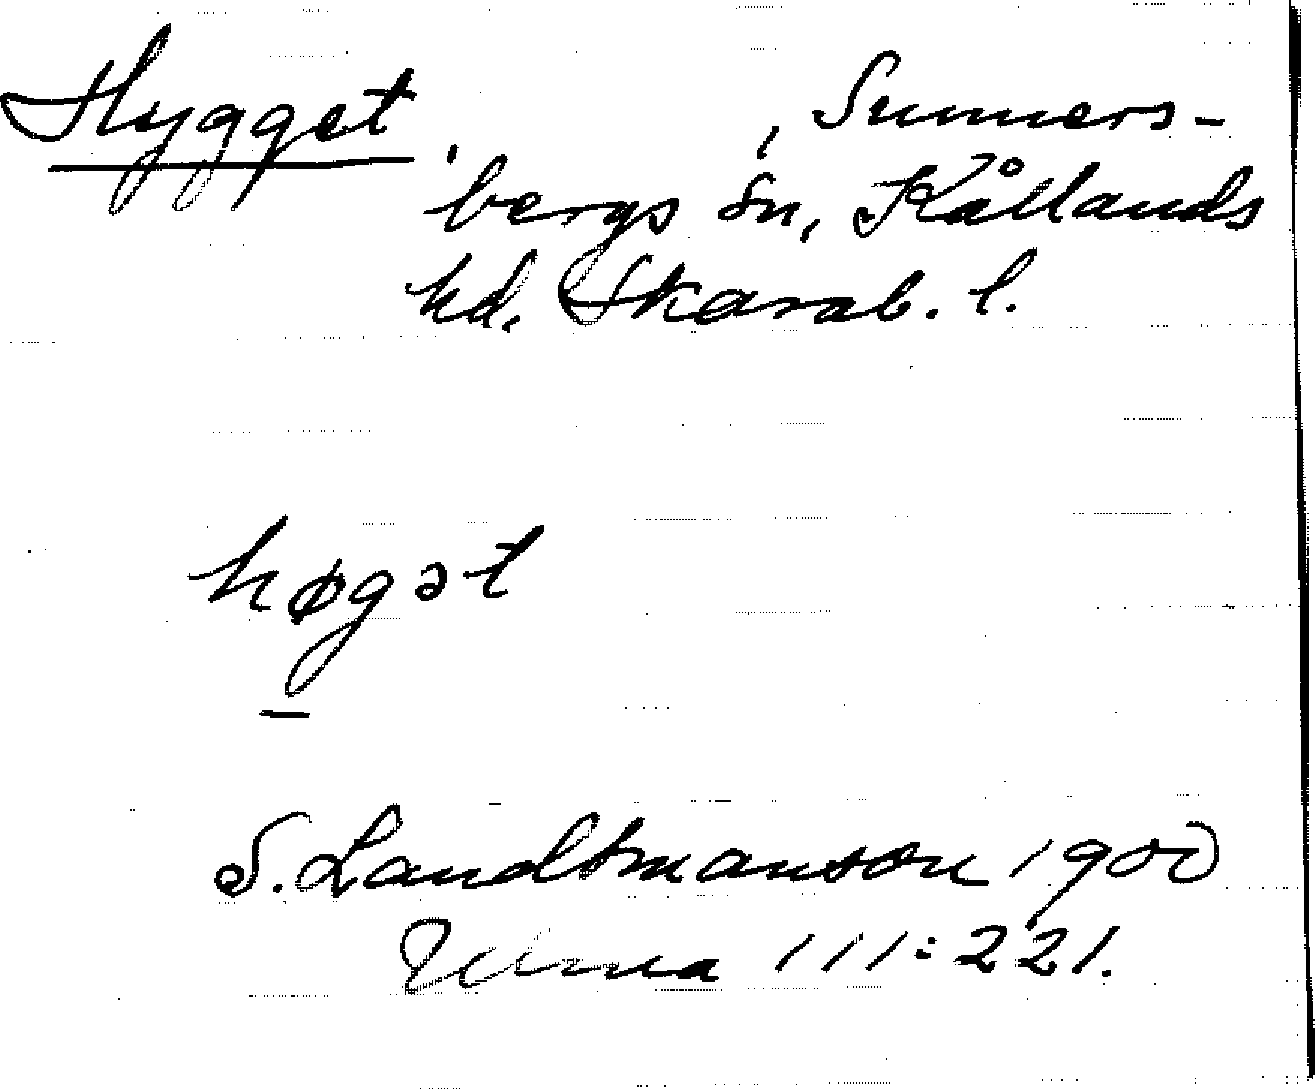 Hygget , Sunners-
bergs sn, Kållands
hd. Skarab. l.
høgət
S. Landtmanson 1900
Ulma 111:221.